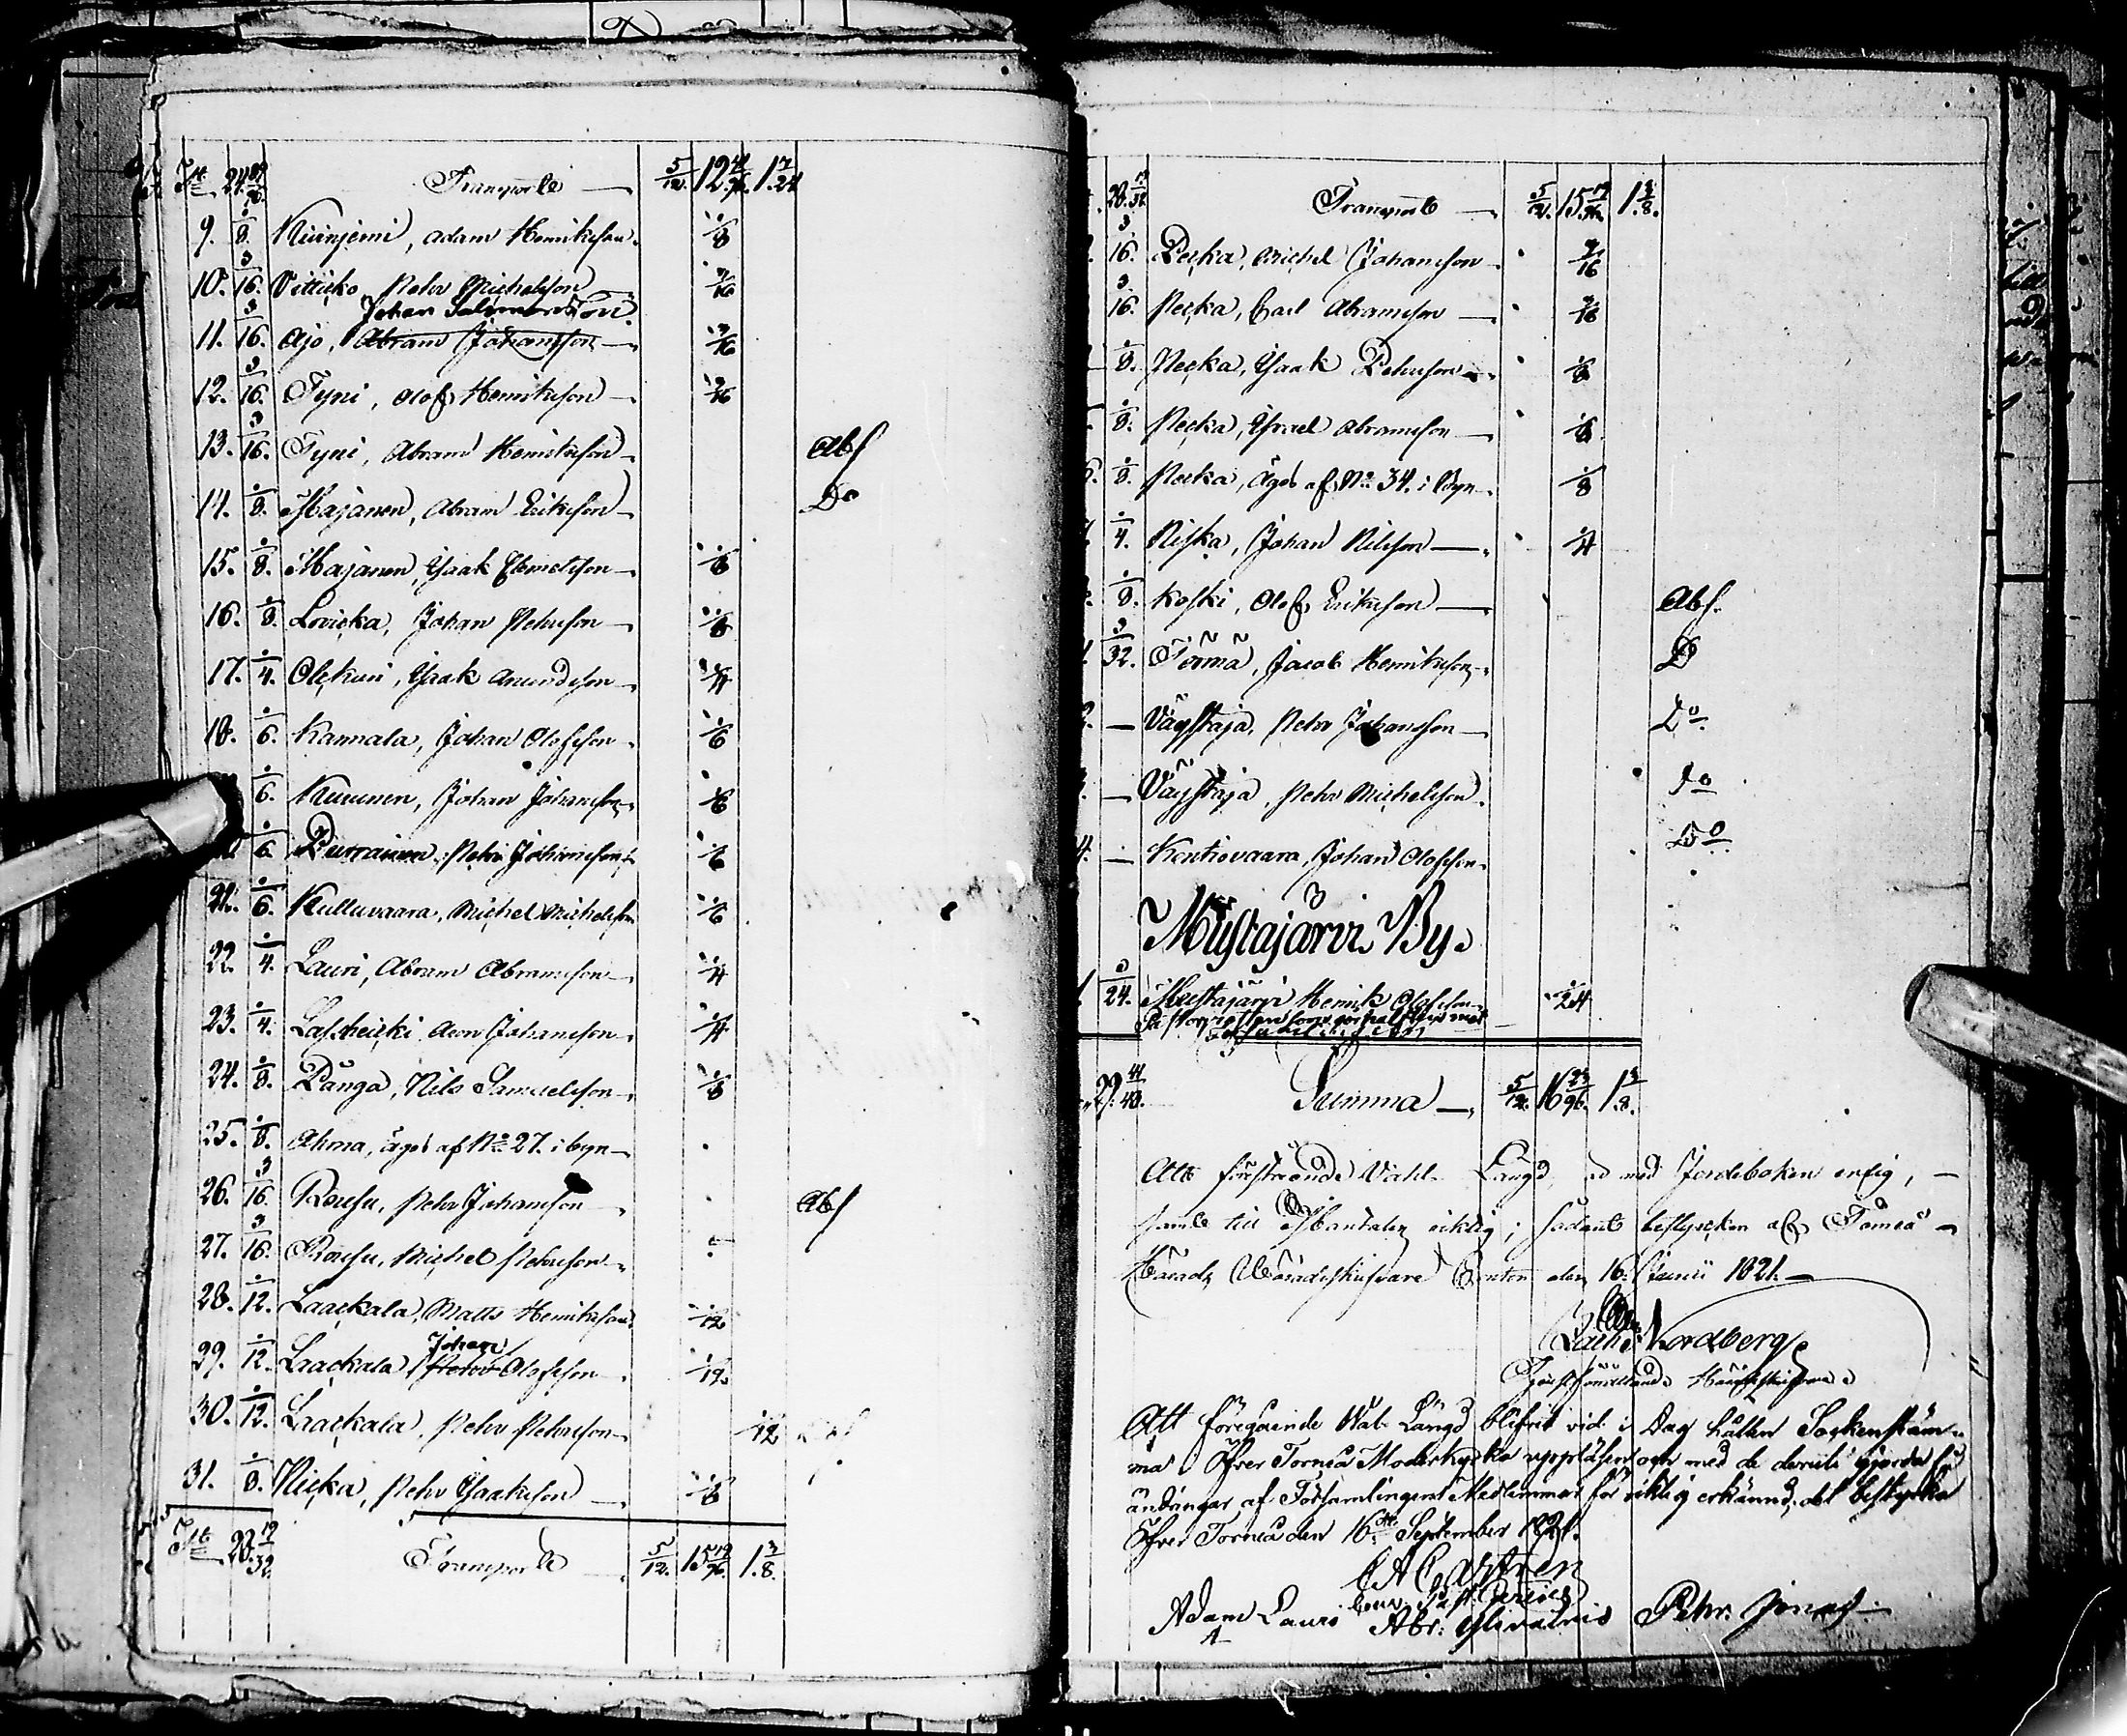 Transporte 5/12. 12 1 7/24
9. 1/8. Kiviniemi, Adam Henriksson 1/8
10. 3/16. Vittikko, Petter Michelsson 3/16
Johan Salomonsson
11. 3/16. Ajo, Abram Johansson 3/16
12. 3/16. Tyni, Olof Henriksson 3/16
13. 3/16. Tyni, Abram Henriksson Abs
14. 1/8. Majanen, Abram Eriksson Do
15. 1/8. Majanen, Isaak Clemetsson 1/8
16. 1/8. Lovicka, Johan Pehrsson 1/8
17. 1/4. Olckuri, Isaak Anundsson 1/4
18. 1/6. Kannala, Johan Olofsson 1/6
1/6. Kuunen, Johan Johansson 1/6
1/6. Purrainen, Pehr Johansson 1/6
21. 1/6. Kulluvaara, Michel Michelsson 1/6
22. 1/4. Lauri, Abram Abramsson 1/4
23. 1/4. Lascheicki, Aron Johansson 1/4
24. 1/8. Pånga, Nils Samuelsson 1/8
25. 1/8. Ahma, äges af No 27. i byn
26. 3/16. Rousu, Pehr Johansson Abs
27. 3/16. Rousu, Michel Pehrsson
28. 1/12. Laackala, Matts Henriksson 1/12
Johan
29. 1/12. Laackala, Pehr Olofsson 1/12
30. 1/12. Laackala, Pehr Pehrsson 1/12
31. 1/8. Niska, Pehr Isaaksson 1/8
28. 19/32 Transporte 5/12. 15 19/96. 1. 3/8.
28. 19/32 Transporte 5/12. 15 19/96. 1. 3/8.
3/16. Pecka, Michel Johansson 3/16
3/16. Pecka, Carl Abramsson 3/16
1/8. Pecka, Isaak Pehrsson 1/8
1/8. Pecka, Israel Abramsson 1/8
1/8. Pecka, äges af No 34. i Byn 1/8
1/4. Niska, Johan Nilsson 1/4
1/8. Koski, Olof Eriksson Abs.
3/32. Törmä, Jacob Henriksson D
Väystäjä, Pehr Johansson Do
Väystäjä, Pehr Michelsson Do
4. Kentiovaara, Johan Olofsson Do
Mustajärvi By.
1. 1/24. Mustajärvi Henrik Olofsson 1/24
29. Summa 5/12. 16 23/96. 1. 3/8.
Att förestående Vahl Längd, är med Jordeboken enlig,
samt till Mantalen riktig; sådant bestyrckes af Torneå
Härads Häradsskrifvare Contor den 16. Junii 1821.
Zach: Nordberg
Tjenstförrättande Häradsskrifvare
Att föregående Wal Längd blifvit vid i Dag hållen Sockenstäm-
ma i Öfver Torneå Moderkyrka uppläsen och med de deruti gjorda för
ändringar af Församlingens Medlemmar för riktig erkännd, det bestyrka
Öfver Torneå den 16de September 1821.
E A Castren
Adam Lauri Abr: Ylivainio Pehr. Jonas